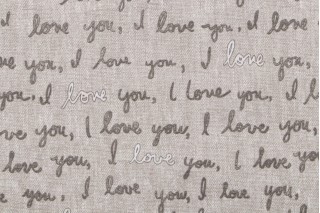 I love you, I love you, I love
love you, I love you, I love you,
you, I love you, I love you, I l
love you, I love you, I love you,
love you, I love you, I love you
you, I love you, I love you,